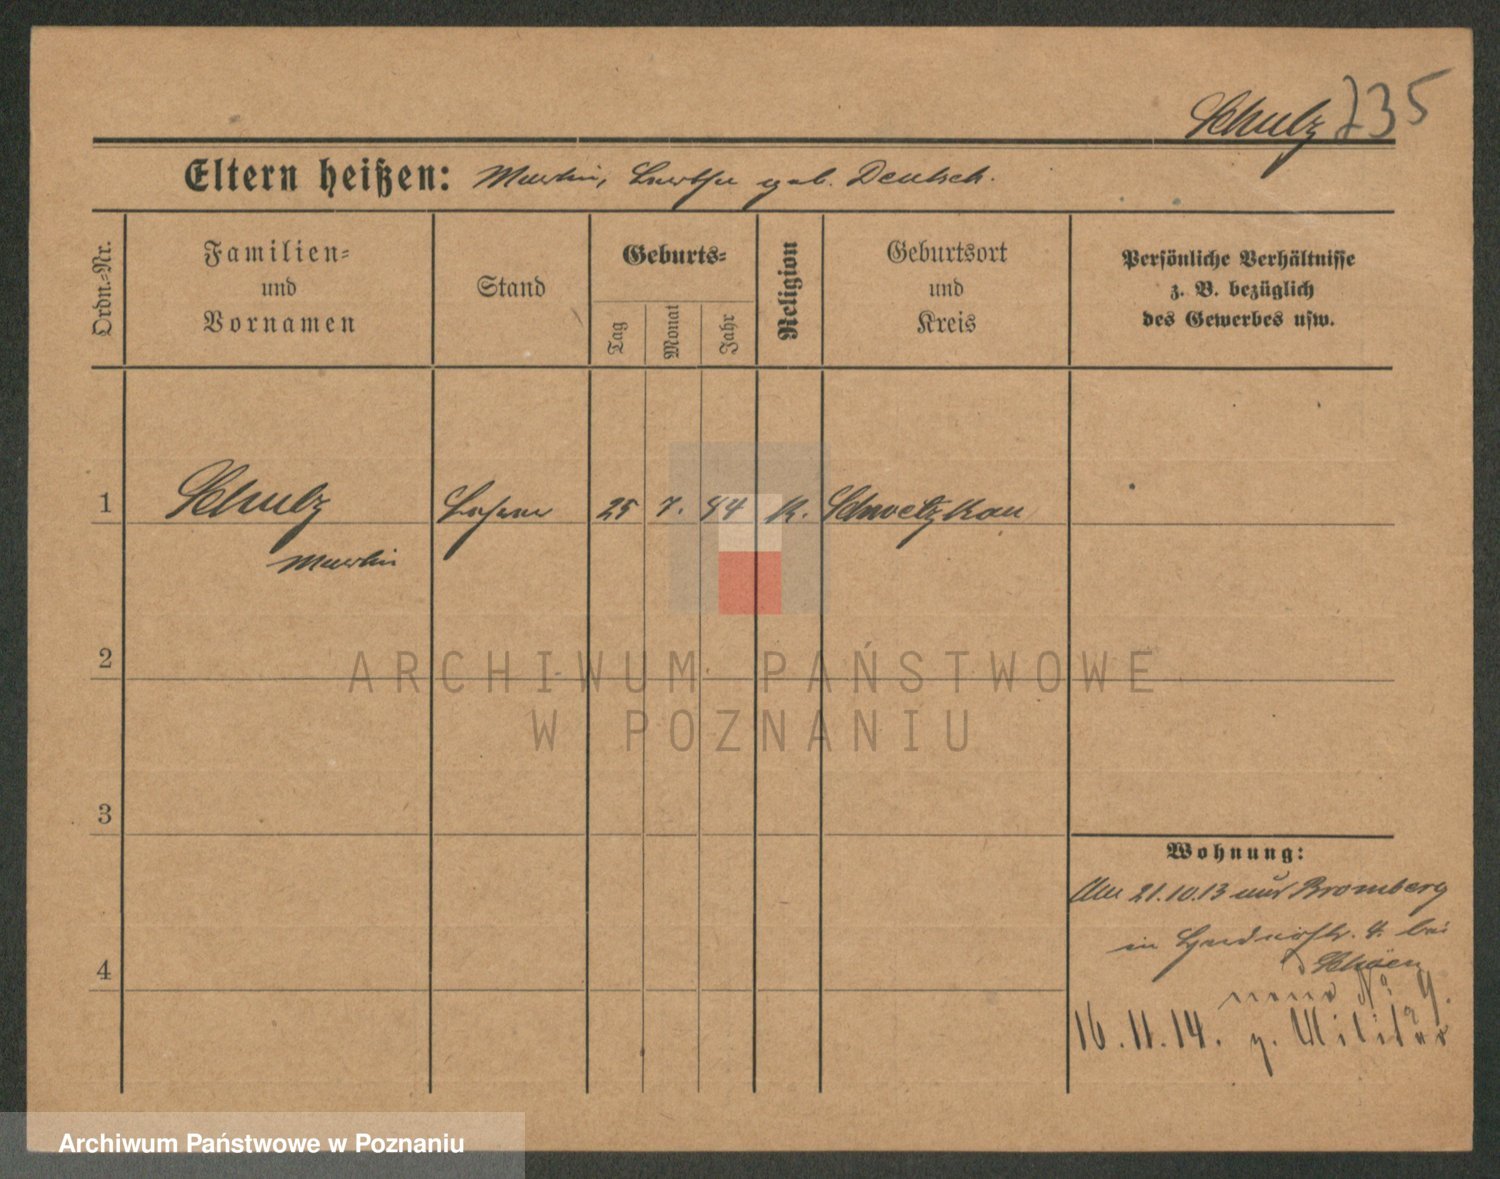 Schulz 735
Eltern heißen: Martin, Bertha geb. Deutsch.
Ordn.=Nr.
Familien=
und
Vornamen
Stand
Geburts=
Tag
Monat
Jahr
Religion
Geburtsort
und
Kreis
Persönliche Verhältnisse
z. B. bezüglich
des Gewerbes usw.
1 Schulz 25 7. 84 K. Schwetzkau
Martin
2
3
4
Wohnung:
Am 21.10.13 aus Bromberg
in 4. bei
Schoen
neue No 9.
16.11.14. z. Militär
ARCHIWUM PAŃSTWOWE
W POZNANIU
Archiwum Państwowe w Poznaniu